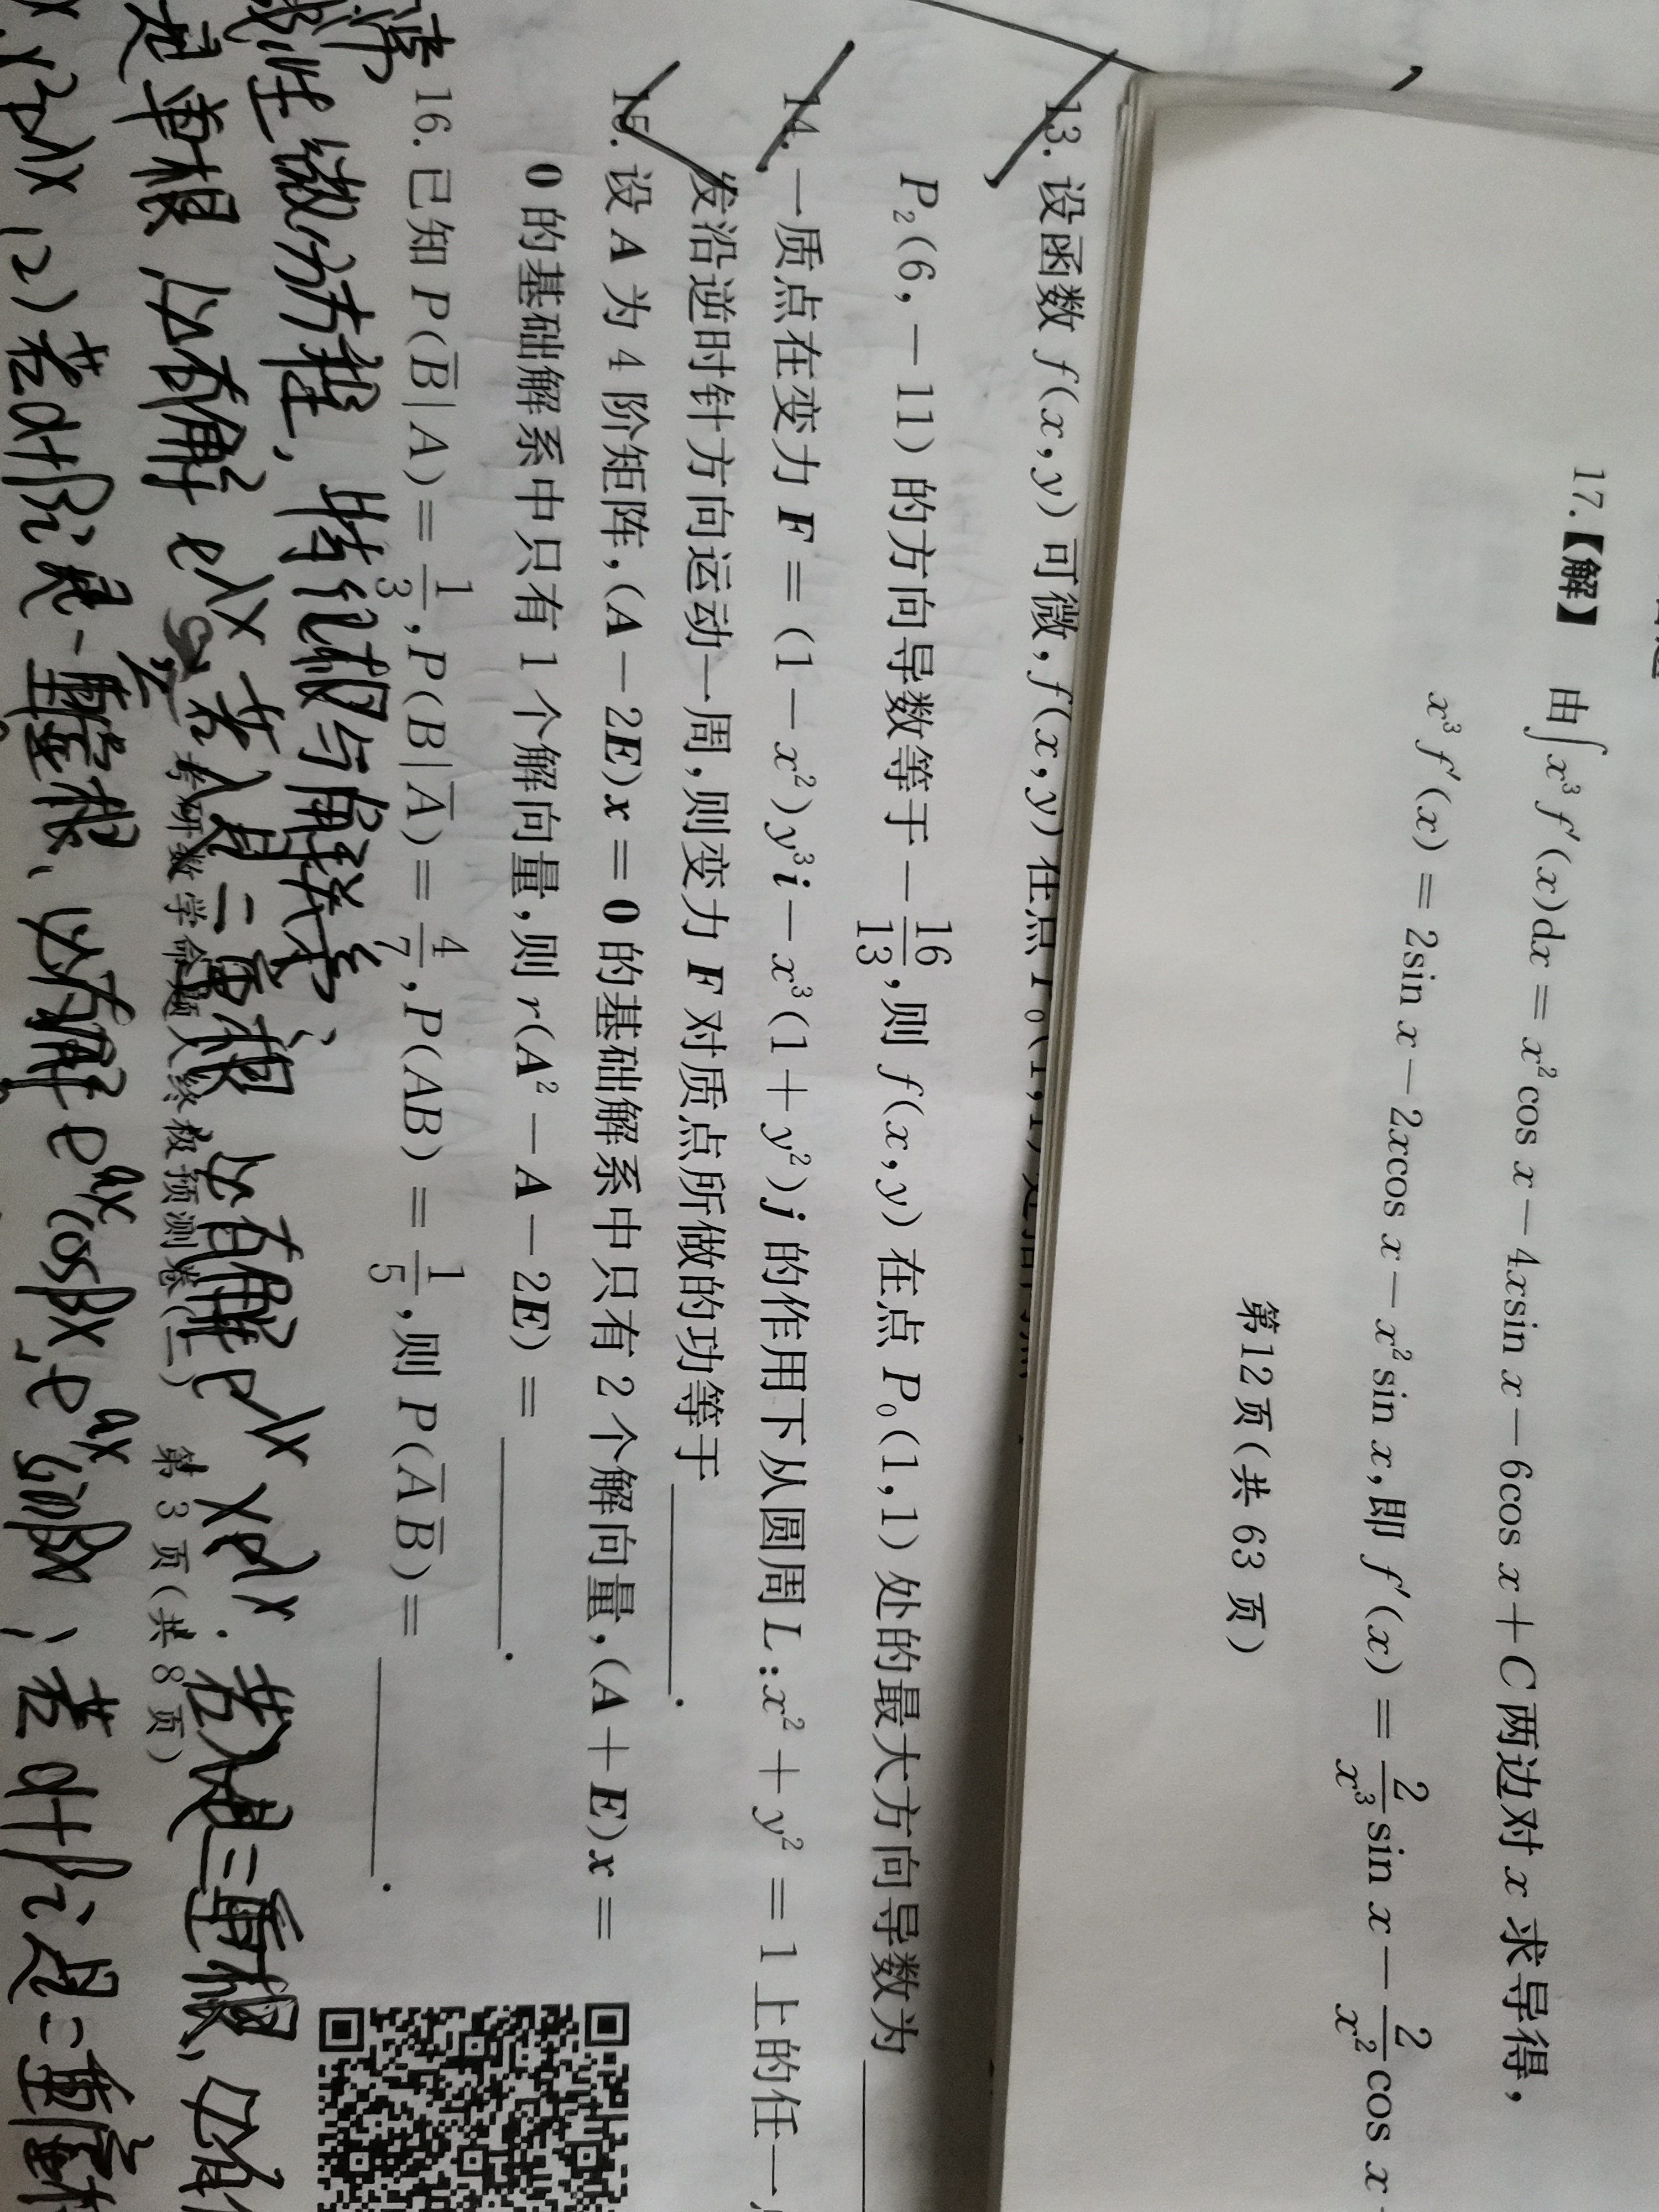 17.【解】 由∫x³f′(x)dx = x²cos x − 4xsin x − 6cos x + C 两边对 x 求导得,
x³f′(x) = 2sin x − 2xcos x − x²sin x, 即 f′(x) = 2/x³ sin x − 2/x² cos x
第12页(共 63 页)
13. 设函数 f(x,y) 可微, f(x,y) 在点 P₀(1,1)
P₂(6,−11) 的方向导数等于 −16/13, 则 f(x,y) 在点 P₀(1,1) 处的最大方向导数为
14. 一质点在变力 F = (1 − x²)y³i − x³(1 + y²)j 的作用下从圆周 L : x² + y² = 1 上的任一
发沿逆时针方向运动一周, 则变力 F 对质点所做的功等于 ______.
15. 设 A 为 4 阶矩阵, (A − 2E)x = 0 的基础解系中只有 2 个解向量, (A + E)x =
0 的基础解系中只有 1 个解向量, 则 r(A² − A − 2E) = ______.
16. 已知 P(B̅|A) = 1/3, P(B|A̅) = 4/7, P(AB) = 1/5, 则 P(A̅ B̅) = ______.
性微分方程, 特征根与解关系;
是单根 必有解 eλx 若λ是二重根 必有解 eλx xeλx. 若λ是三重根, 必有
考研数学命题人终极预测卷(二) 第 3 页(共 8 页)
x²eλx (2) 若α+βi是一重根, 必有解 eαxcosβx, eαxsinβx ; 若α+βi是二重